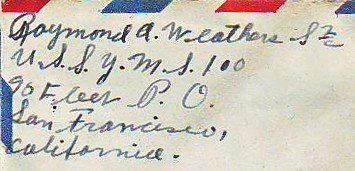 Raymond A. Weathers S 2/c
U.S.S. Y.M.S. 100
℅ Fleet P. O.
San Francisco,
California.